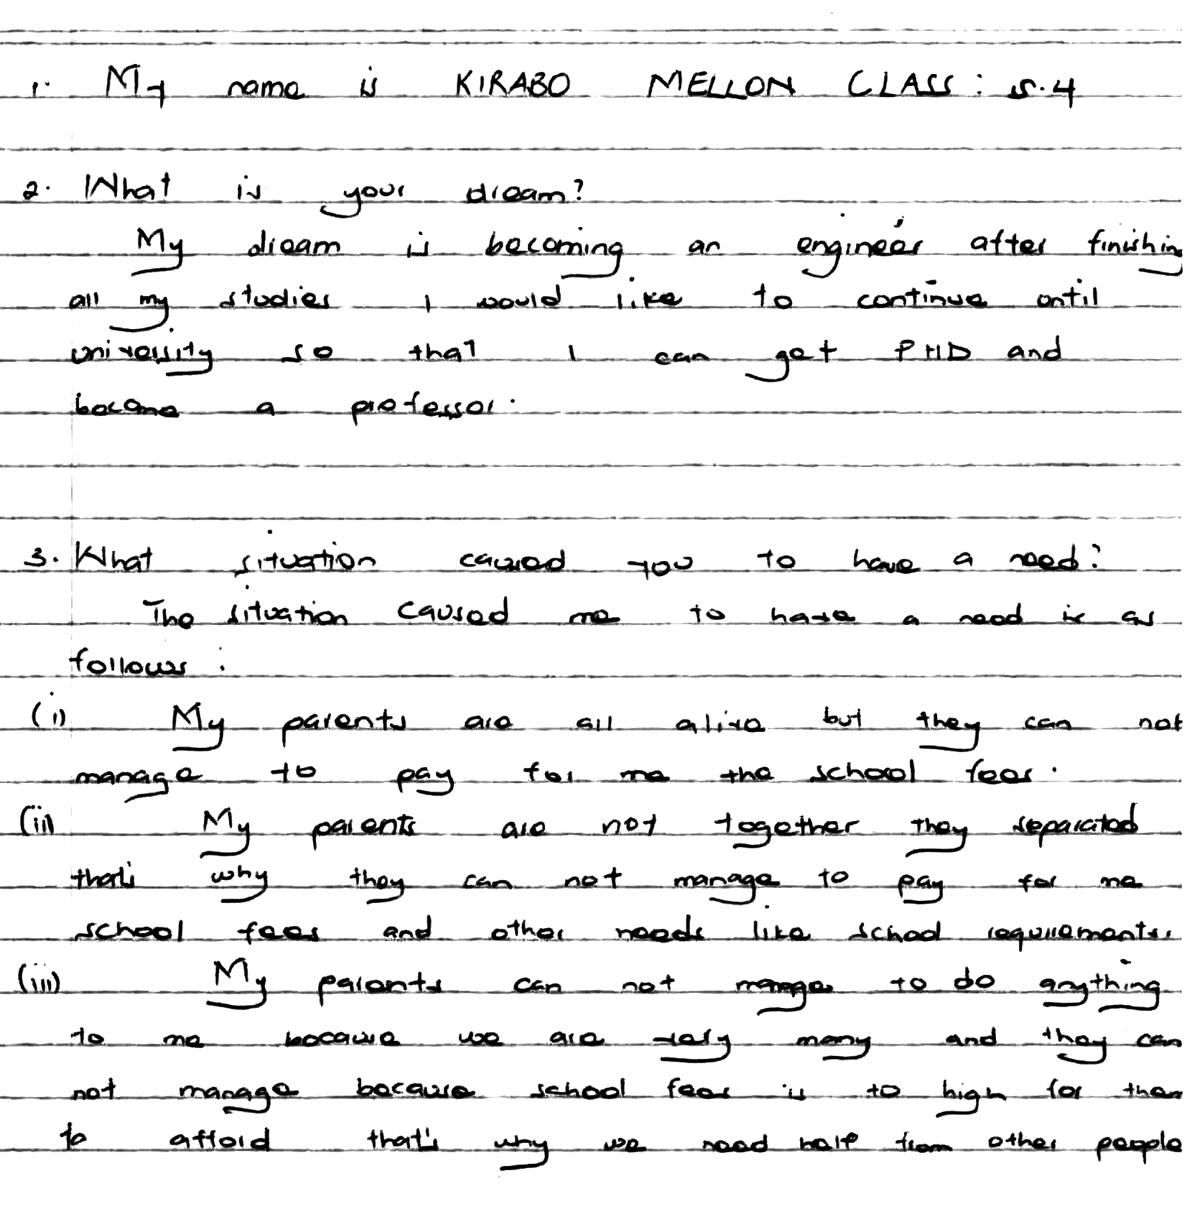 1. My name is KIRABO MELLON CLASS: S.4
2. What is your dream?
My dream is becoming an engineer after finishing
all my studies I would like to continue until
university so that I can get PHD and
become a professor.
3. What situation caused you to have a need?
The situation caused me to have a need is as
follows:
(i) My parents are all alive but they can not
manage to pay for me the school fees.
(ii) My parents are not together they separated
that's why they can not manage to pay for me
school fees and other needs like school requirements.
(iii) My parents can not manage to do anything
to me because we are very many and they can
not manage because school fees is to high for them
to afford that's why we need help from other people